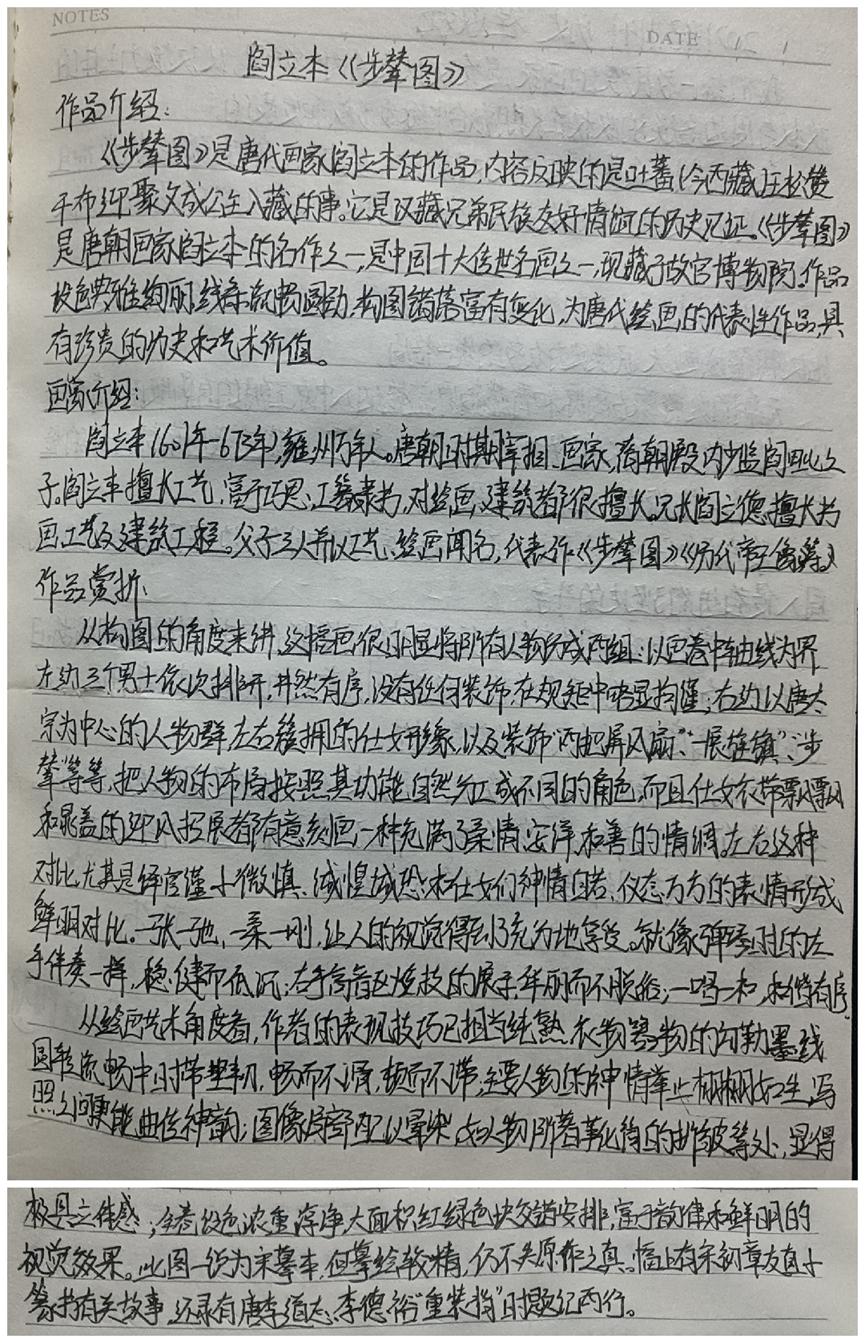 NOTES
DATE
阎立本《步辇图》
作品介绍:
《步辇图》是唐代画家阎立本的作品,内容反映的是吐蕃(今西藏)王松赞
干布迎娶文成公主入藏的事。它是汉藏兄弟民族友好情谊的历史见证。《步辇图》
是唐朝画家阎立本的名作之一,是中国十大传世名画之一,现藏于故宫博物院。作品
设色典雅绚丽,线条流畅圆劲,构图错落富有变化,为唐代绘画的代表性作品,具
有珍贵的历史和艺术价值。
画家介绍:
阎立本(601年-673年),雍州万年人。唐朝时期宰相、画家,隋朝殿内少监阎毗之
子。阎立本擅长工艺,富于巧思,工篆隶书,对绘画、建筑都很擅长。兄长阎立德擅长书
画工艺及建筑工程。父子三人并以工艺、绘画闻名,代表作《步辇图》《历代帝王像》等。
作品赏析:
从构图的角度来讲,这幅画很明显将所有人物分成两组:以画卷中轴线为界
左边三个男士依次排开,井然有序,没有任何装饰,在规矩中略显拘谨;右边以唐太
宗为中心的人物群,左右簇拥的仕女形象,以及装饰“两把屏风扇”、“一展旌旗”、“步
辇”等等,把人物的布局按照其功能,自然分工成不同的角色,而且仕女衣带飘飘
和冕盖的迎风招展都有意刻画一种充满了柔情、安详、和善的情绸。左右这种
对比,尤其是译官谨小微慎、诚惶诚恐和仕女们神情自若、仪态万方的表情形成
鲜明对比。一张一弛,一柔一刚,让人的视觉得到了充分地享受。就像弹琴时的左
手伴奏一样,稳健而低沉;右手高音区炫技的展示,华丽而不脱俗;一唱一和,和谐有序。
从绘画艺术角度看,作者的表现技巧已相当纯熟。衣物等物的勾勒墨线
圆转流畅中时带坚韧,畅而不滑,顿而不滞;主要人物的神情举止栩栩如生,写
照之间更能曲传神韵;图像局部配以晕染,如人物所着靴筒的折皱等处,显得
极具立体感;全卷设色浓重淳净,大面积红绿色块交错安排,富于韵律和鲜明的
视觉效果。此图一说为宋摹本,但摹绘较精,仍不失原作之真。幅上有宋初章友直小
篆书有关故事,还录有唐李道志、李德裕“重装褙”时题记两行。